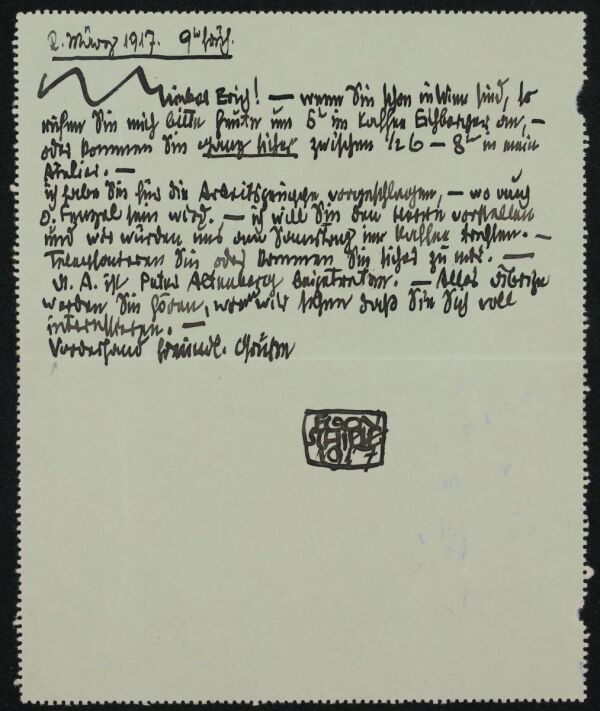 2. März 1917. 9h früh.
Lieber Erich! — wenn Sie schon in Wien sind, so
rufen Sie mich bitte heute um 5h im Kaffee Eichberger an, —
oder kommen Sie ganz sicher zwischen ½ 6 – 8h in mein
Atelier. —
ich habe Sie für die Arbeitsgruppe vorgeschlagen, — wo auch
sein wird. — ich will Sie den Herrn vorstellen
und wir würden uns am Samstag im Kaffee treffen. —
Telefonieren Sie oder kommen Sie sicher zu mir. —
U. A. ist Peter Altenberg beigetreten. — Alles Übrige
werden Sie hören, wenn wir sehen daß Sie Sich voll
interessieren. —
Vorderhand freundl. Grüße
EGON
SCHIELE
1917